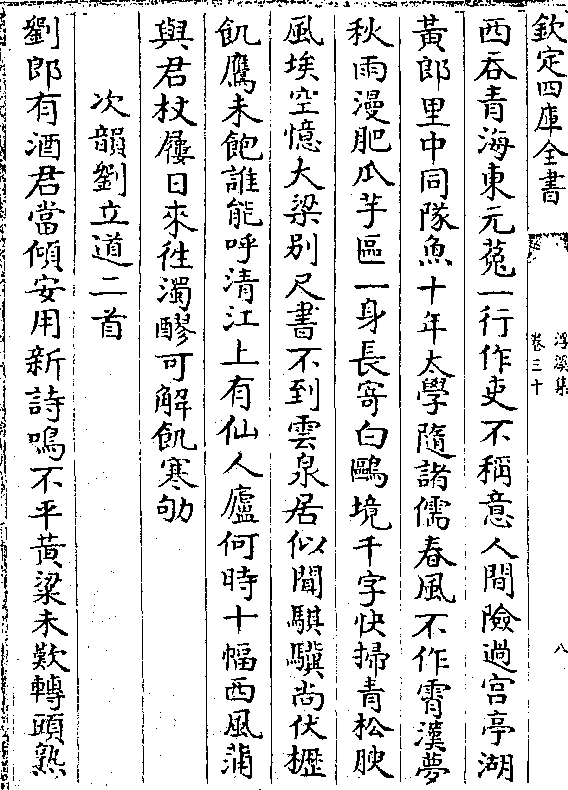 欽定四庫全書
浮溪集
卷三十
八
西吞青海東元菟一行作吏不稱意人間險過宮亭湖
黃郎里中同隊魚十年太學隨諸儒春風不作霄漢夢
秋雨漫肥瓜芋區一身長寄白鷗境千字快掃青松腴
風埃空憶大梁別尺書不到雲泉居似聞騏驥尚伏櫪
飢鷹未飽誰能呼清江上有仙人廬何時十幅西風蒲
與君杖屨日來徃濁醪可解飢寒劬
次韻劉立道二首
劉郎有酒君當傾安用新詩鳴不平黃粱未歎轉頭熟